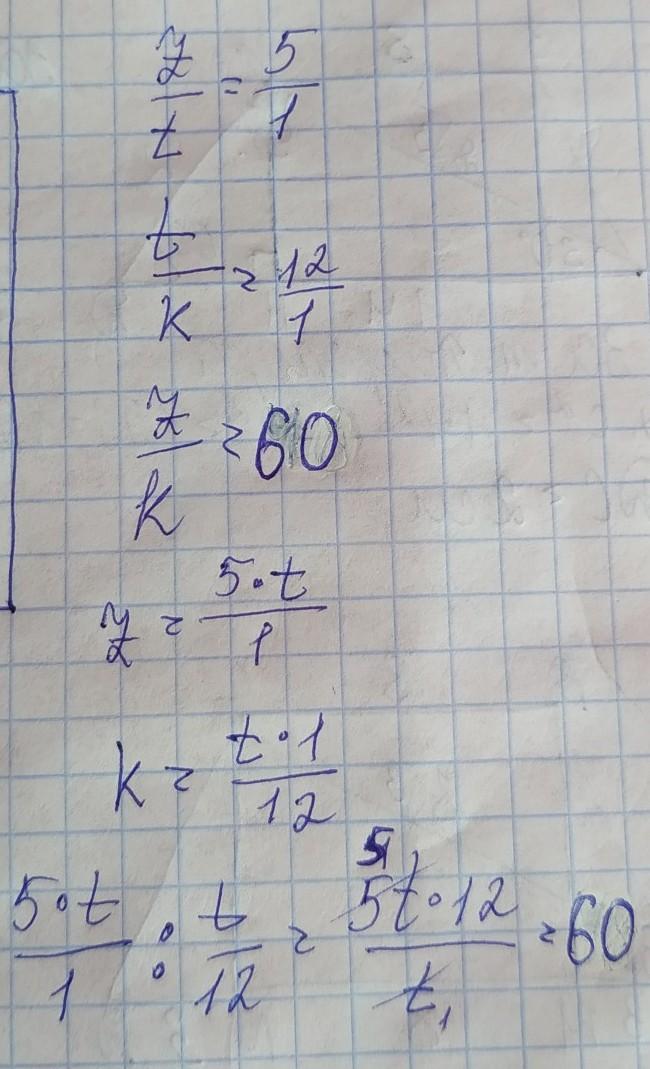 z/t = 5/1
t/k = 12/1
z/k = 60
z = 5·t/1
k = t·1/12
5·t/1 : t/12 = 5t·12/t = 60